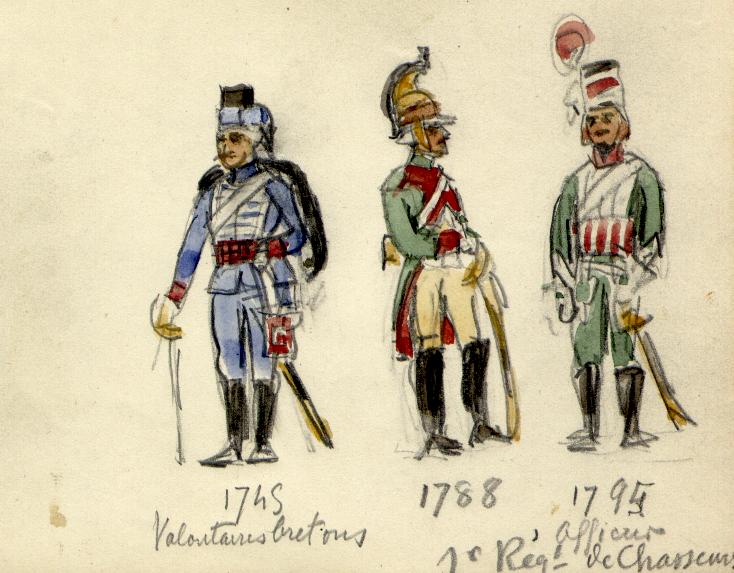 1745
Volontaires bretons
1788
1795
Officier
1er Régt de Chasseurs